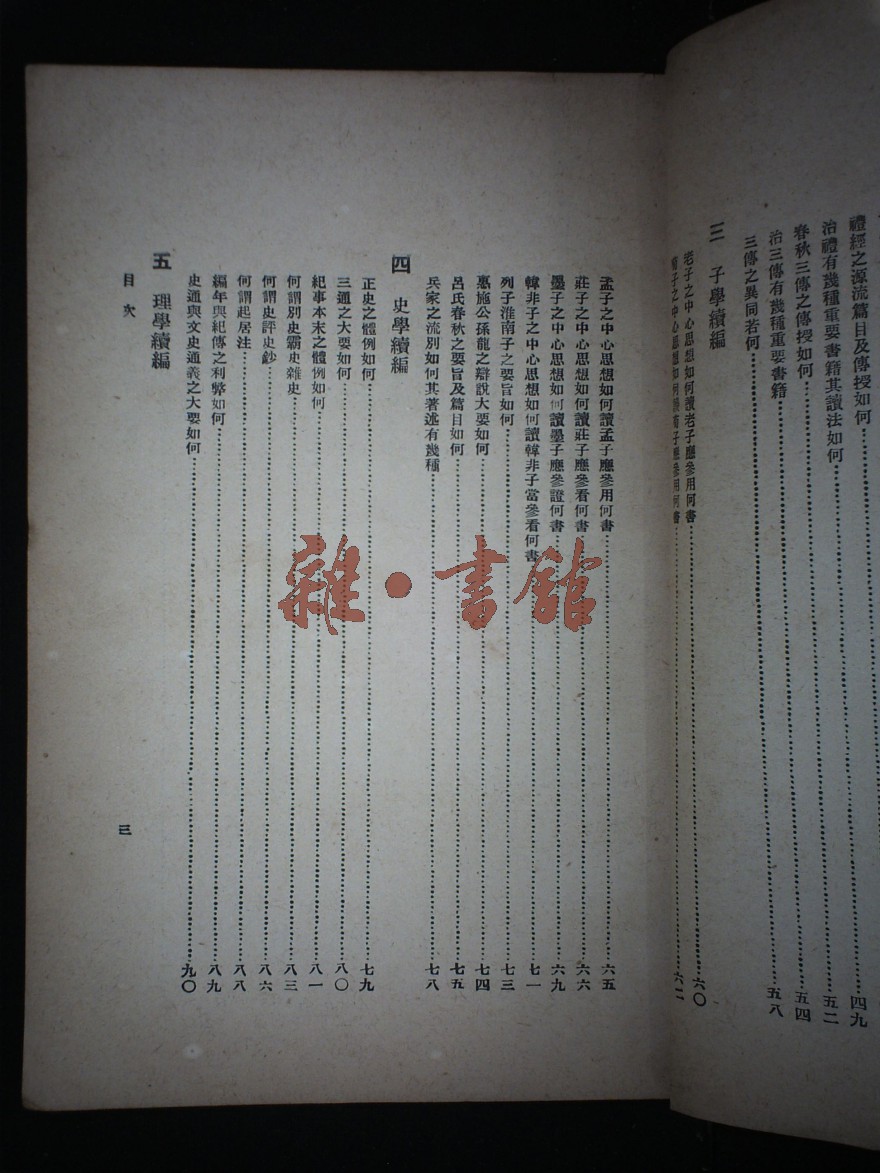 禮經之源流篇目及傳授如何 四九
治禮有幾種重要書籍其讀法如何 五二
春秋三傳之傳授如何 五四
治三傳有幾種重要書籍
三傳之異同若何 五八
三 子學續編
老子之中心思想如何讀老子應參用何書 六〇
荀子之中心思想如何讀荀子應參用何書 六二
孟子之中心思想如何讀孟子應參用何書 六五
莊子之中心思想如何讀莊子應參看何書 六六
墨子之中心思想如何讀墨子應參證何書 六九
韓非子之中心思想如何讀韓非子當參看何書 七一
列子淮南子之要旨如何 七三
惠施公孫龍之辯說大要如何 七四
呂氏春秋之要旨及篇目如何 七五
兵家之流別如何其著述有幾種 七八
四 史學續編
正史之體例如何 七九
三通之大要如何 八〇
紀事本末之體例如何 八一
何謂別史霸史雜史 八三
何謂史評史鈔 八六
何謂起居注 八八
編年與紀傳之利弊如何 八九
史通與文史通義之大要如何 九〇
五 理學續編
目次
三
雜·書館